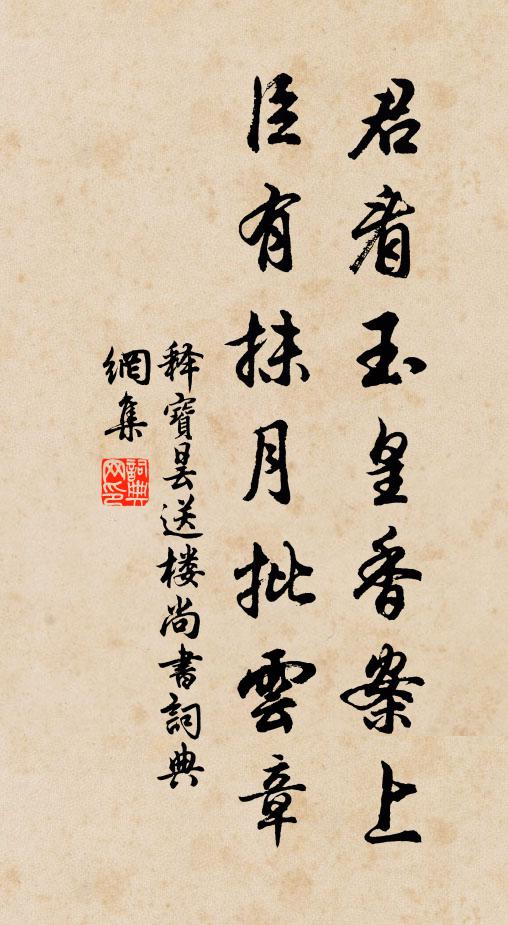 君看玉皇香案上
臣有抹月批雲章
释寶曇送楼尚書詞典
網集
詞典
网印